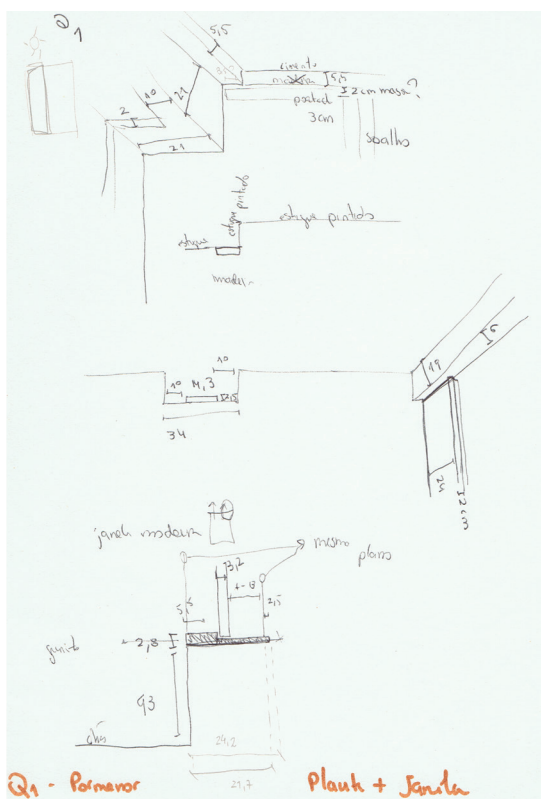 1
5,5
cimento
madeira
5,5
2 cm massa?
postal
3 cm
soalho
10
21
2
21
estuque pintado
estuque pintado
estuque
madeira
10
10
14,3
2,5
34
19
6
24
2 cm
janela madeira
mesmo
plano
3,2
+- 13
5,5
2,5
granito
2,8
93
chão
24,2
21,7
Q1 - Pormenor
Planta + Janela